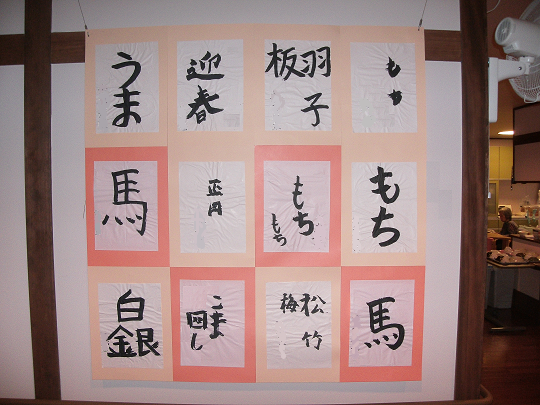 うま
迎春
羽子
板
もち
馬
正円
もち
もち
もち
白銀
こま
回し
松竹
梅
馬